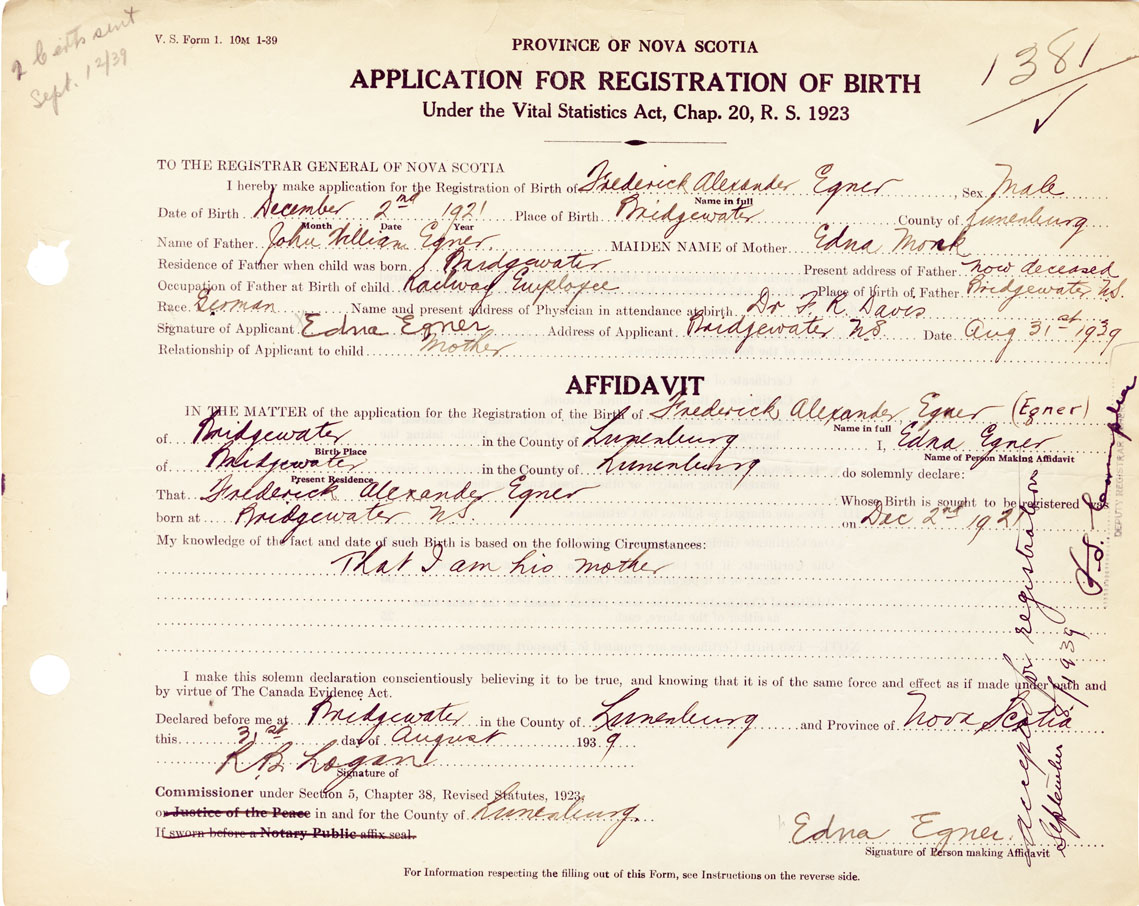 2 Certs sent
Sept. 12/39
V. S. Form 1. 10M 1-39
PROVINCE OF NOVA SCOTIA
1381
APPLICATION FOR REGISTRATION OF BIRTH
Under the Vital Statistics Act, Chap. 20, R. S. 1923
TO THE REGISTRAR GENERAL OF NOVA SCOTIA
I hereby make application for the Registration of Birth of Frederick Alexander Egner, Sex Male
Name in full
Date of Birth December 2nd 1921 Place of Birth Bridgewater County of Lunenburg
Month Date Year
Name of Father John William Egner. MAIDEN NAME of Mother Edna Monk
Residence of Father when child was born Bridgewater Present address of Father now deceased
Occupation of Father at Birth of child Railway Employee Place of Birth of Father Bridgewater N.S.
Race German Name and present address of Physician in attendance at birth Dr F. R. Davis
Signature of Applicant Edna Egner Address of Applicant Bridgewater N.S Date Aug 31st 1939
Relationship of Applicant to child Mother
AFFIDAVIT
IN THE MATTER of the application for the Registration of the Birth of Frederick Alexander Egner (Egner)
Name in full
of Bridgewater in the County of Lunenburg I, Edna Egner
Birth Place Name of Person Making Affidavit
of Bridgewater in the County of Lunenburg do solemnly declare:
Present Residence
That Frederick Alexander Egner Whose Birth is sought to be registered was
born at Bridgewater N.S. on Dec 2nd 1921
My knowledge of the fact and date of such Birth is based on the following Circumstances:
That I am his mother
I make this solemn declaration conscientiously believing it to be true, and knowing that it is of the same force and effect as if made under oath and
by virtue of The Canada Evidence Act.
Declared before me at Bridgewater in the County of Lunenburg and Province of Nova Scotia
this 31st day of August 1939
R. B. Logan
Signature of
Commissioner under Section 5, Chapter 38, Revised Statutes, 1923,
or Justice of the Peace in and for the County of Lunenburg.
If sworn before a Notary Public affix seal.
Edna Egner.
Signature of Person making Affidavit
For Information respecting the filling out of this Form, see Instructions on the reverse side.
accepted for registration
September 8/1939
DEPUTY REGISTRAR